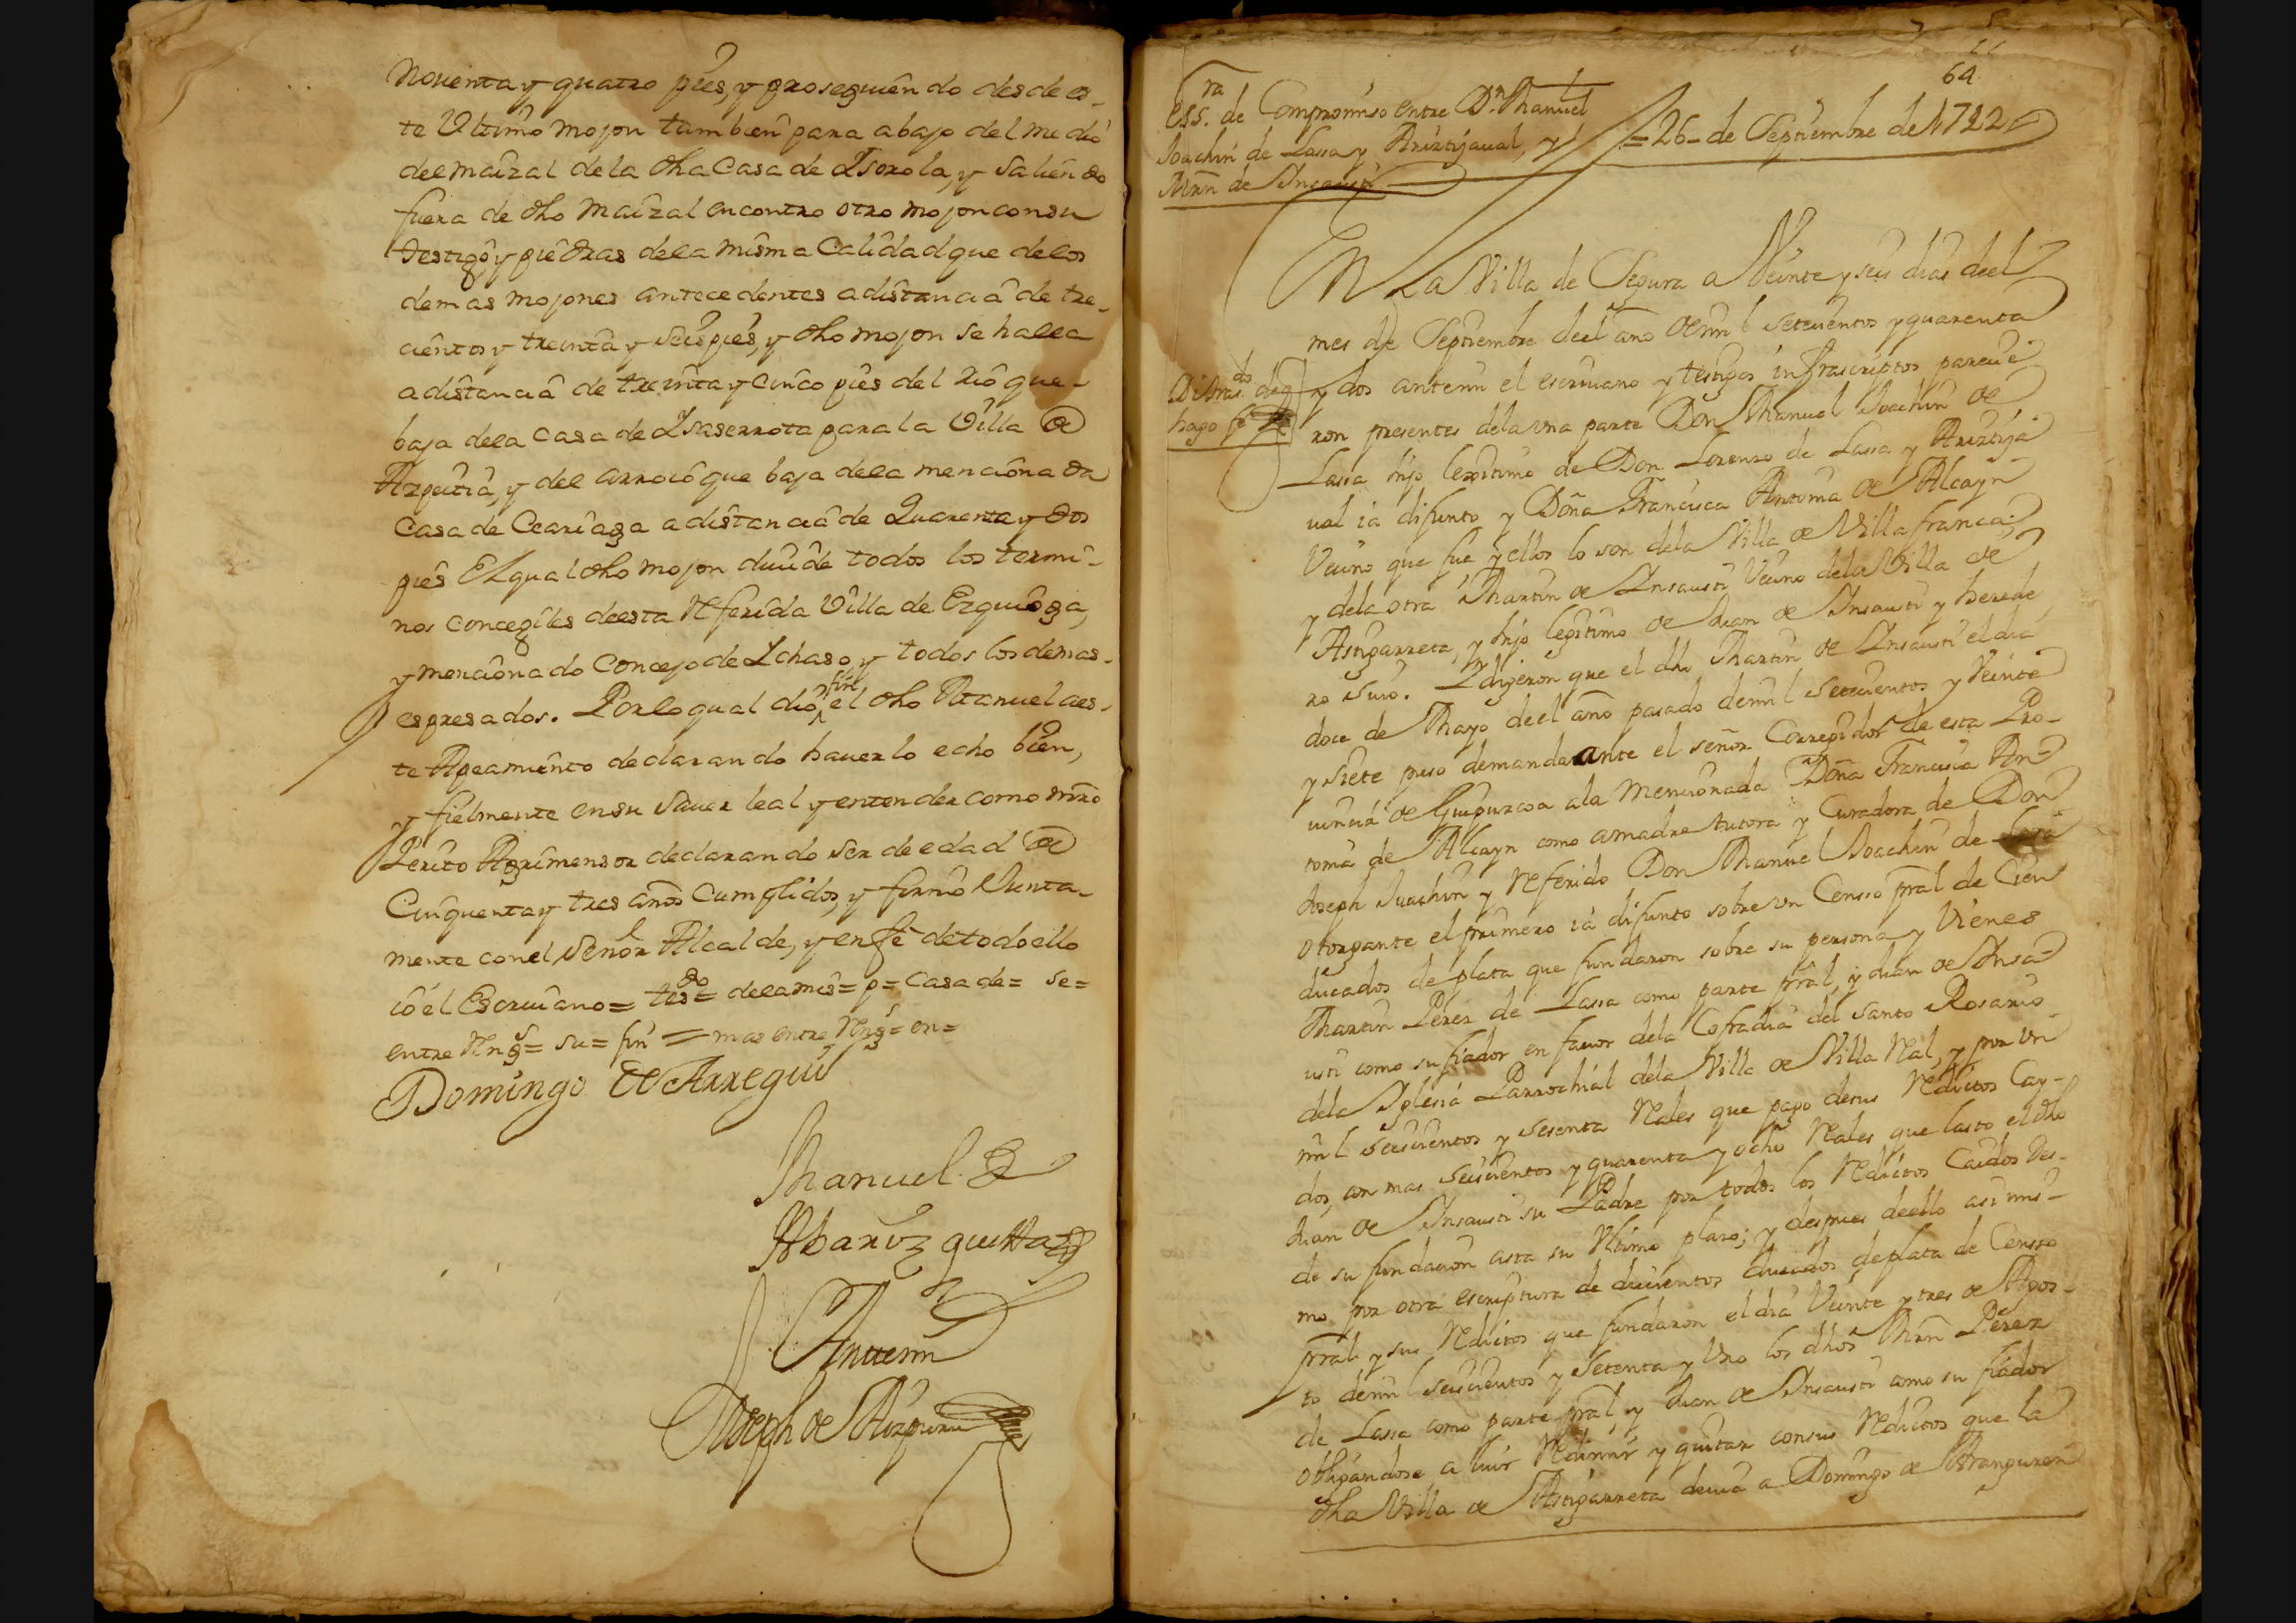 Noventa y quatro pies, y prosiguiendo desde es-
te Ultimo mojon tambien para abajo del medio
del maizal de la dha Casa de Ysorola, y saliendo
fuera de dho Maizal encontro otro mojon con su
testigo, y piedras de la misma Calidad que de los
demas mojones antecedentes a distancia de tre-
cientos y treinta y seis pies, y dho mojon se halla
a distancia de treinta y cinco pies del rio que
baja de la casa de Ysaserrota para la Villa de
Azpeitia, y del arroio que baja de la mencionada
Casa de Ceariaga a distancia de Quarenta y dos
pies El qual dho mojon divide todos los termi-
nos concegiles de esta Referida Villa de Ezquioga,
y mencionado Concejo de Ychaso, y todos los demas
espresados. Por lo qual dio fin el dho Manuel a es-
te Apeamiento declarando haverlo echo bien,
y fielmente en su Saver leal y entender como mro
Perito Agrimensor declarando ser de edad de
Cinquenta y tres años Cumplidos, y firmo Junta-
mente con el Señor Alcalde, y en fe de todo ello
io el Escrivano = tesgo = de la mis = p = Casa de = se =
entre Rengs = su = fin = mas entre Rengs = en =
Domingo de Arregui
Manuel de
Abarizquieta
Antemi
Joseph de Aizpuru
64
Essra de Compromiso entre Dn Manuel
Joachin de Lassa y Ariztijaval, y
Mrn de Insausti
= 26 - de Septiembre de 1742
En La Villa de Segura a Veinte y seis dias deel
mes de Septiembre deel año de mil Setecientos y quarenta
y dos antemi el escrivano y testigos infrascriptos parecie
hago fe
ron presentes de la una parte Don Manuel Joachin de
Lassa hijo lexitimo de Don Lorenzo de Lassa y Ariztija
val ia difunto y Doña Francisca Antonia de Alcayn
Vecino que fue y ellos lo son de la Villa de Villafranca;
y de la otra Martin de Insausti Vecino de la Villa de
Astigarreta, y hijo legitimo de Juan de Insausti y herede
ro suio. Y dijeron que el dho Martin de Insausti el dia
doce de Mayo deel año pasado de mil Setecientos y Veinte
y siete puso demanda ante el señor Corregidor de esta Pro-
vincia de Guipuzcoa a la Mencionada Doña Francisca An-
tonia de Alcayn como a madre tutora y Curadora de Don
Joseph Juachin y Referido Don Manuel Joachin de
otorgante el primero ia difunto sobre un Censso pral de Cien
ducados de plata que fundaron sobre su persona y Vienes
Martin Perez de Lassa como parte pral, y Juan de Insa-
usti como su fiador en favor de la Cofradia del Santo Rosario
de la Iglesia Parrochial de la Villa de Villa Real, y por un
mil Seiscientos y sesenta Reales que pago de sus Reditos Cay-
dos, con mas Seiscientos y quarenta y ocho Reales que lasto el dho
Juan de Insausti su Padre por todos los Reditos Caidos Des-
de su fundacion asta su Ultimo plazo; y despues de ello asimis-
mo por otra escriptura de ducientos ducados de plata de Censso
pral y sus Reditos que fundaron el dia Veinte y tres de Agos-
to de mil Seiscientos y Setenta y Uno los dhos Mrn Perez
de Lassa como parte pral y Juan de Insausti como su fiador
obligandose a luir Redimir y quitar con sus Reditos que la
dha Villa de Astigarreta devia a Domingo de Aranguren